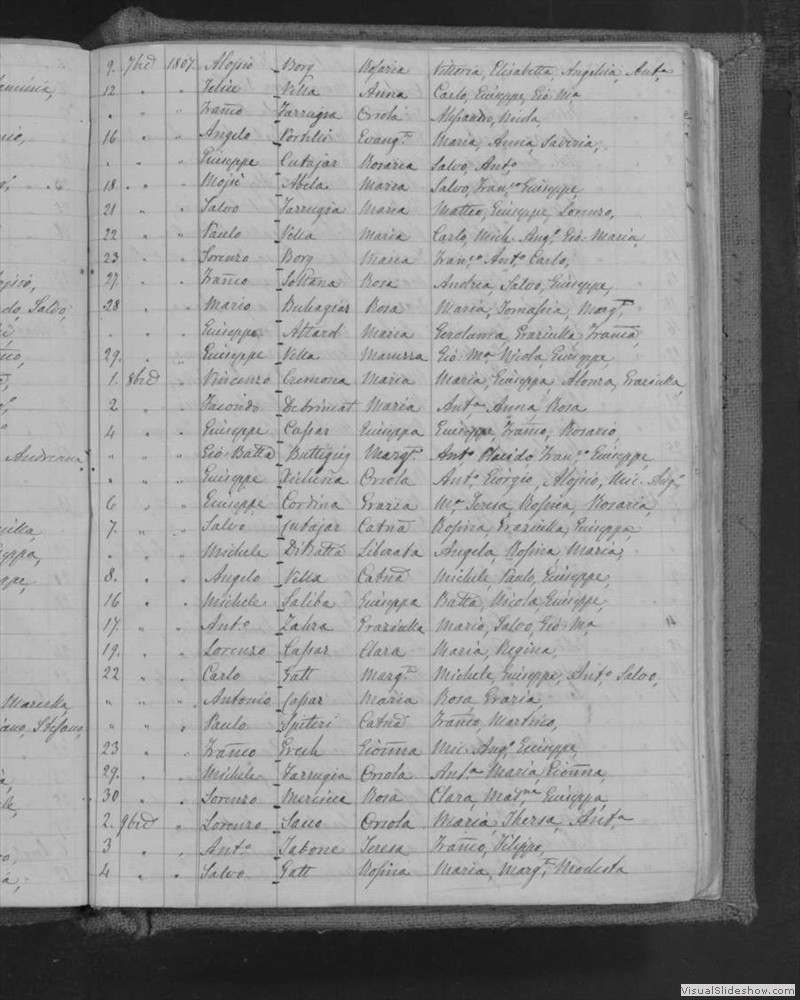 9. 7bre 1807 Aloisio Borg Rosaria Vittoria, Elisabetta, Angelica, Ant.a
12 " " Felice Vella Anna Carlo, Giuseppe, Gio M.a
" " " Franco Farrugia Orsola Alessandro, Nicola,
16 " " Angelo Portelli Evang.ta Maria, Anna Saveria,
" " " Giuseppe Cutajar Rosaria Salvo, Ant.o
18 " " Mosè Abela Maria Salvo, Fran.co Giuseppe,
21 " " Salvo Farrugia Maria Matteo, Giuseppe, Lorenzo,
22 " " Paulo Vella Maria Carlo, Mich. Ang.o Gio Maria,
23 " " Lorenzo Borg Maria Fran.co Ant.o Carlo,
27. " " Franco Soltana Rosa Andrea Salvo, Giuseppe,
28 " " Mario Buhagiar Rosa Maria, Tomasia, Marg.ta
" " " Giuseppe Attard Maria Gerolama, Graziulla, Franca,
29. " " Giuseppe Vella Maruzza Gio. M.a Nicola, Giuseppe,
1. 8bre " Vincenzo Cremona Maria Maria, Giuseppa Alonza, Graziulla,
2 " " Facondo Debrincat Maria Ant.a Anna Rosa
4 " " Giuseppe Caspar Giuseppa Giuseppe, Franco, Rosario,
" " " Gio Batta Buttigieg Marg.ta Ant.o Placido, Fran.co Giuseppe,
" " " Giuseppe Xicluna Orsola Ant.o Giorgio, Aloisio, Mic. Ang.o
6 " " Giuseppe Cordina Grazia M.a Teresa, Rosina, Rosaria,
7. " " Salvo Cutajar Catna Rosina, Graziulla, Giuseppa,
" " " Michele DiBatta Liberata Angela, Rosina Maria,
8. " " Angelo Vella Catna Michele, Paulo, Giuseppe,
16 " " Michele Saliba Giuseppa Batta, Nicola, Giuseppe,
17. " " Ant.o Zahra Graziulla Mario, Salvo, Gio M.a
19. " " Lorenzo Caspar Clara Maria, Regina,
22 " " Carlo Gatt Marg.ta Michele, Giuseppe, Ant.o Salvo,
" " " Antonio Caspar Maria Rosa, Grazia,
" " " Paulo Spiteri Catna Franco, Martino,
23 " " Franco Grech Gionna Mic. Ang.o Giuseppe,
29. " " Michele Farrugia Orsola Ant.a Maria, Gionna,
30 " " Lorenzo Mercieca Rosa Clara, Mad.na Giuseppa,
2. 9bre " Lorenzo Sano Orsola Maria, Theresa, Ant.a
3 " " Ant.o Tabone Teresa Franco, Filippo,
4 " " Salvo Gatt Rosina Maria, Marg.ta Modesta
VisualSlideshow.com